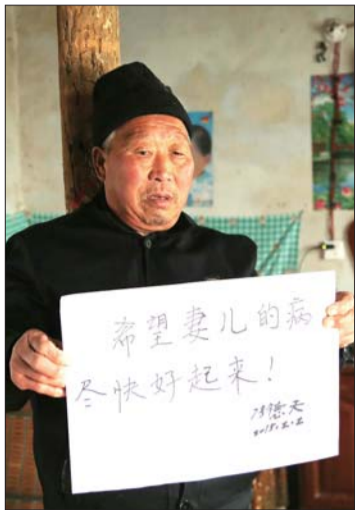 希望妻儿的病
尽快好起来！
冯德天
2015.2.2